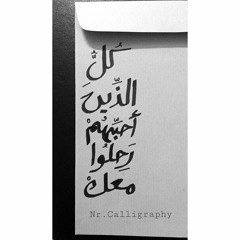 كُلُّ
الذِّينَ
أحبِّهُمْ
رَحلُوا
معكْ
Nr.Calligraphy